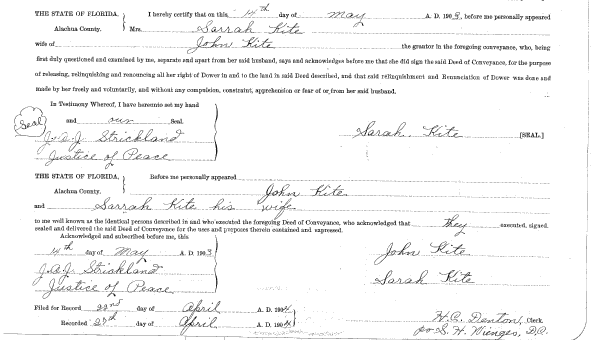 THE STATE OF FLORIDA, I hereby certify that on this 14th day of May A. D. 190 , before me personally appeared
Alachua County. Mrs. Sarrah Kite
wife of John Kite the grantor in the foregoing conveyance, who, being
first duly questioned and examined by me, separate and apart from her said husband, says and acknowledges before me that she did sign the said Deed of Conveyance, for the purpose
of releasing, relinquishing and renouncing all her right of Dower in and to the land in said Deed described, and that said relinquishment and Renunciation of Dower was done and
made by her freely and voluntarily, and without any compulsion, constraint, apprehension or fear of or from her said husband.
In Testimony Whereof, I have hereunto set my hand
Seal and our Seal.
J.A.J. Strickland Sarah Kite [SEAL.]
Justice of Peace
THE STATE OF FLORIDA. Before me personally appeared
Alachua County. John Kite
and Sarrah Kite his wife
to me well known as the identical persons described in and who executed the foregoing Deed of Conveyance, who acknowledged that they executed, signed,
sealed and delivered the said Deed of Conveyance for the uses and purposes therein contained and expressed.
Acknowledged and subscribed before me, this
14th day of May A. D. 1903 John Kite
J.A.J. Strickland
Justice of Peace Sarah Kite
Filed for Record 22nd day of April A. D. 1904
Recorded 27th day of April A. D. 1904 H. C. Denton, Clerk.
per S. H. Wienges, D.C.